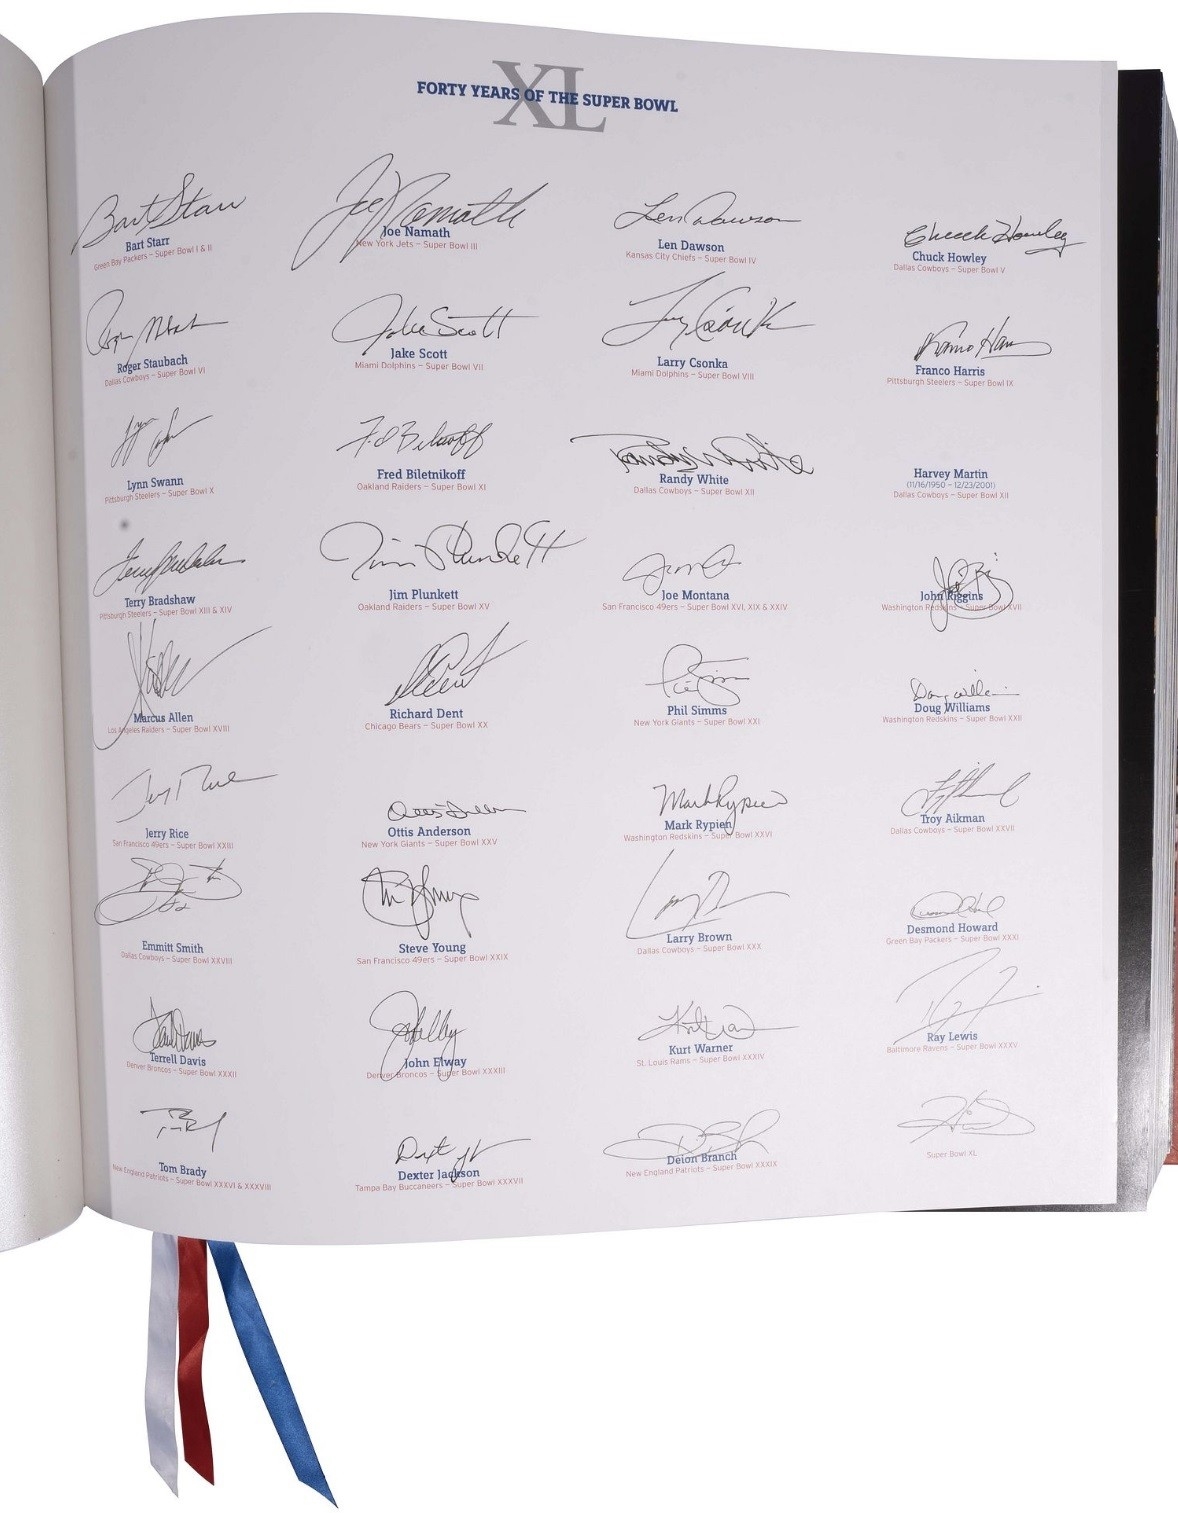 XL
FORTY YEARS OF THE SUPER BOWL
Bart Starr
Bart Starr
Green Bay Packers – Super Bowl I & II
Joe Namath
Joe Namath
New York Jets – Super Bowl III
Len Dawson
Len Dawson
Kansas City Chiefs – Super Bowl IV
Chuck Howley
Chuck Howley
Dallas Cowboys – Super Bowl V
Roger Staubach
Dallas Cowboys – Super Bowl VI
Jake Scott
Jake Scott
Miami Dolphins – Super Bowl VII
Larry Csonka
Larry Csonka
Miami Dolphins – Super Bowl VIII
Franco Harris
Pittsburgh Steelers – Super Bowl IX
Lynn Swann
Pittsburgh Steelers – Super Bowl X
Fred Biletnikoff
Oakland Raiders – Super Bowl XI
Randy White
Randy White
Dallas Cowboys – Super Bowl XII
Harvey Martin
(11/16/1950 – 12/23/2001)
Dallas Cowboys – Super Bowl XII
Terry Bradshaw
Terry Bradshaw
Pittsburgh Steelers – Super Bowl XIII & XIV
Jim Plunkett
Jim Plunkett
Oakland Raiders – Super Bowl XV
Joe Montana
San Francisco 49ers – Super Bowl XVI, XIX & XXIV
John Riggins
Washington Redskins – Super Bowl XVII
Marcus Allen
Los Angeles Raiders – Super Bowl XVIII
Richard Dent
Chicago Bears – Super Bowl XX
Phil Simms
New York Giants – Super Bowl XXI
Doug Williams
Doug Williams
Washington Redskins – Super Bowl XXII
Jerry Rice
San Francisco 49ers – Super Bowl XXIII
Ottis Anderson
New York Giants – Super Bowl XXV
Mark Rypien
Mark Rypien
Washington Redskins – Super Bowl XXVI
Troy Aikman
Dallas Cowboys – Super Bowl XXVII
Emmitt Smith
Dallas Cowboys – Super Bowl XXVIII
Steve Young
San Francisco 49ers – Super Bowl XXIX
Larry Brown
Dallas Cowboys – Super Bowl XXX
Desmond Howard
Green Bay Packers – Super Bowl XXXI
Terrell Davis
Denver Broncos – Super Bowl XXXII
John Elway
Denver Broncos – Super Bowl XXXIII
Kurt Warner
St. Louis Rams – Super Bowl XXXIV
Ray Lewis
Baltimore Ravens – Super Bowl XXXV
Tom Brady
New England Patriots – Super Bowl XXXVI & XXXVIII
Dexter Jackson
Tampa Bay Buccaneers – Super Bowl XXXVII
Deion Branch
New England Patriots – Super Bowl XXXIX
Super Bowl XL